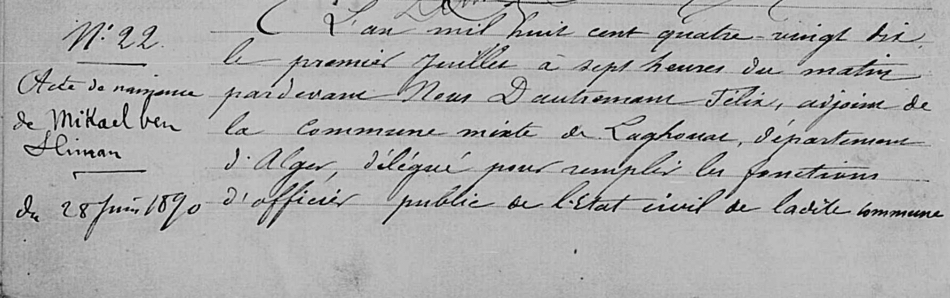 N° 22.
Acte de naissance
de Mikael ben
Sliman
du 28 Juin 1890
L'an mil huit cent quatre-vingt dix,
le premier Juillet à sept heures du matin
pardevant Nous Dautremant Félix, adjoint de
la Commune mixte de Laghouat, département
d'Alger, délégué pour remplir les fonctions
d'officier public de l'Etat civil de ladite commune